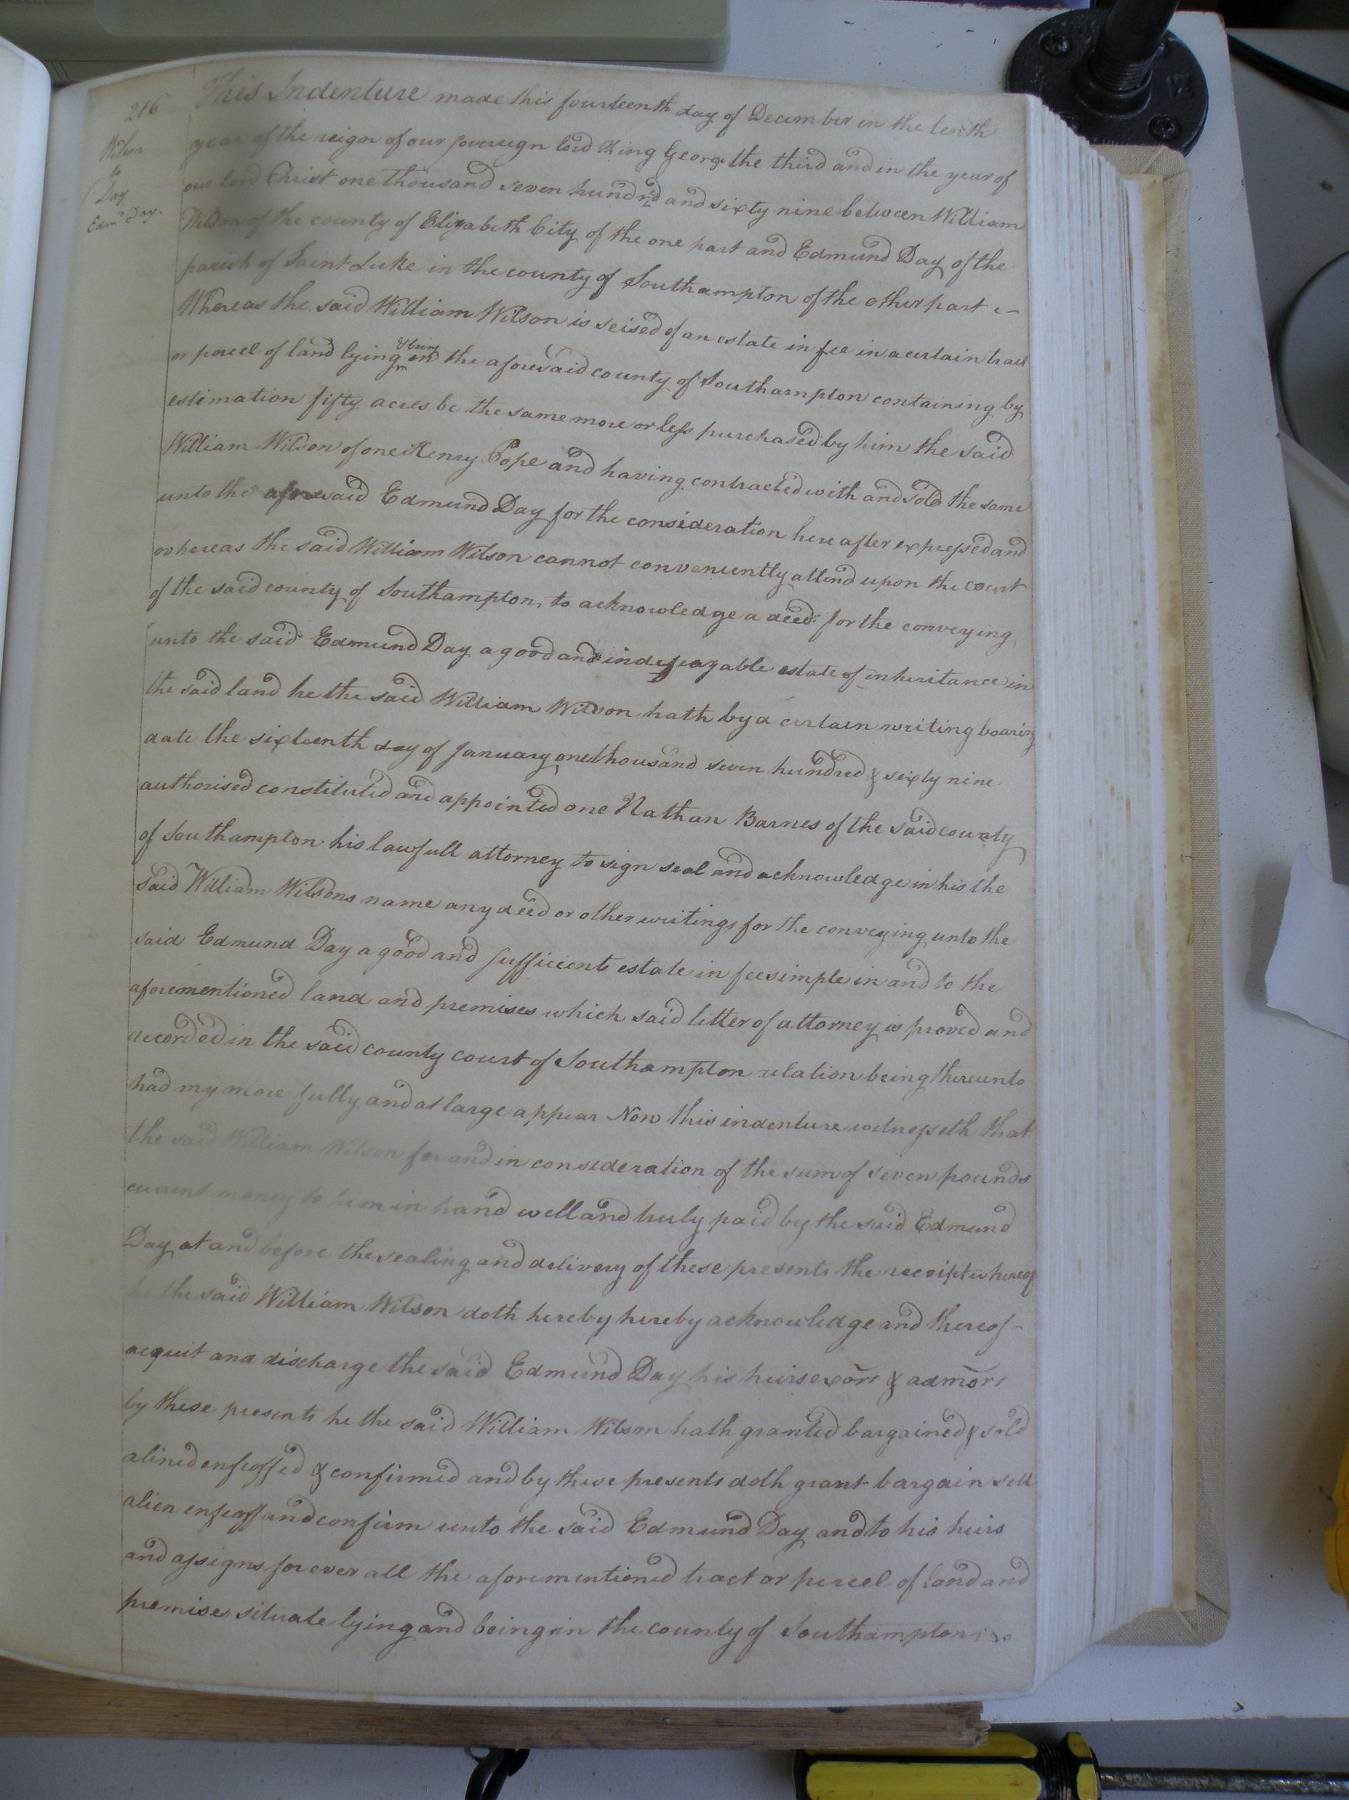 216
Wilson
to
Day
Exmd. Day.
This Indenture made this fourteenth day of December in the tenth
year of the reign of our sovereign lord King George the third and in the year of
our lord Christ one thousand seven hundred and sixty nine between William
Wilson of the county of Elizabeth City of the one part and Edmund Day of the
parish of Saint Luke in the county of Southampton of the other part
Whereas the said William Wilson is seised of an estate in fee in a certain tract
or parcel of land lying & being in the aforesaid county of Southampton containing by
estimation fifty acres be the same more or less purchased by him the said
William Wilson of one Henry Pope and having contracted with and sold the same
unto the aforesaid Edmund Day for the consideration here after expressed and
whereas the said William Wilson cannot conveniently attend upon the court
of the said county of Southampton, to acknowledge a deed for the conveying
unto the said Edmund Day a good and indefeazable estate of inheritance in
the said land he the said William Wilson hath by a certain writing bearing
date the sixteenth day of January one thousand seven hundred & sixty nine
authorised constituted and appointed one Nathan Barnes of the said county
of Southampton his lawfull attorney to sign seal and acknowledge in his the
said William Wilsons name any deed or other writings for the conveying unto the
said Edmund Day a good and sufficient estate in fee simple in and to the
aforementioned land and premises which said letter of attorney is proved and
recorded in the said county court of Southampton relation being thereunto
had my more fully and at large appear Now this indenture witnesseth that
the said William Wilson for and in consideration of the sum of seven pounds
current money to him in hand well and truly paid by the said Edmund
Day at and before the sealing and delivery of these presents the receipt whereof
he the said William Wilson doth hereby hereby acknowledge and thereof
acquit and discharge the said Edmund Day his heirs exōrs & admōrs
by these presents he the said William Wilson hath granted bargained & sold
alined enfeoffed & confirmed and by these presents doth grant bargain sell
alien enfeoff and confirm unto the said Edmund Day and to his heirs
and assigns for ever all the aforementioned tract or parcel of land and
premises situate lying and being in the county of Southampton